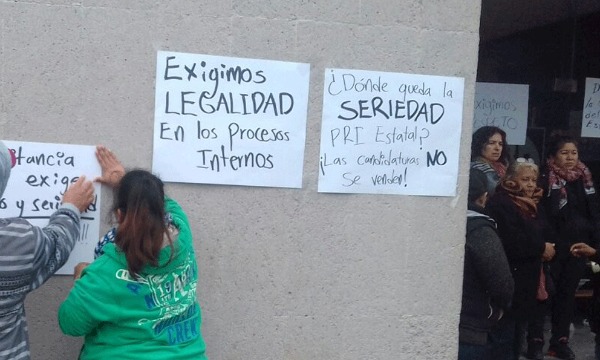 tancia
exige
s y seriedad
!!!
Exigimos
LEGALIDAD
En los Procesos
Internos
¿Dónde queda la
SERIEDAD
PRI Estatal?
¡Las candidaturas NO
se venden!
xigimos
CREW